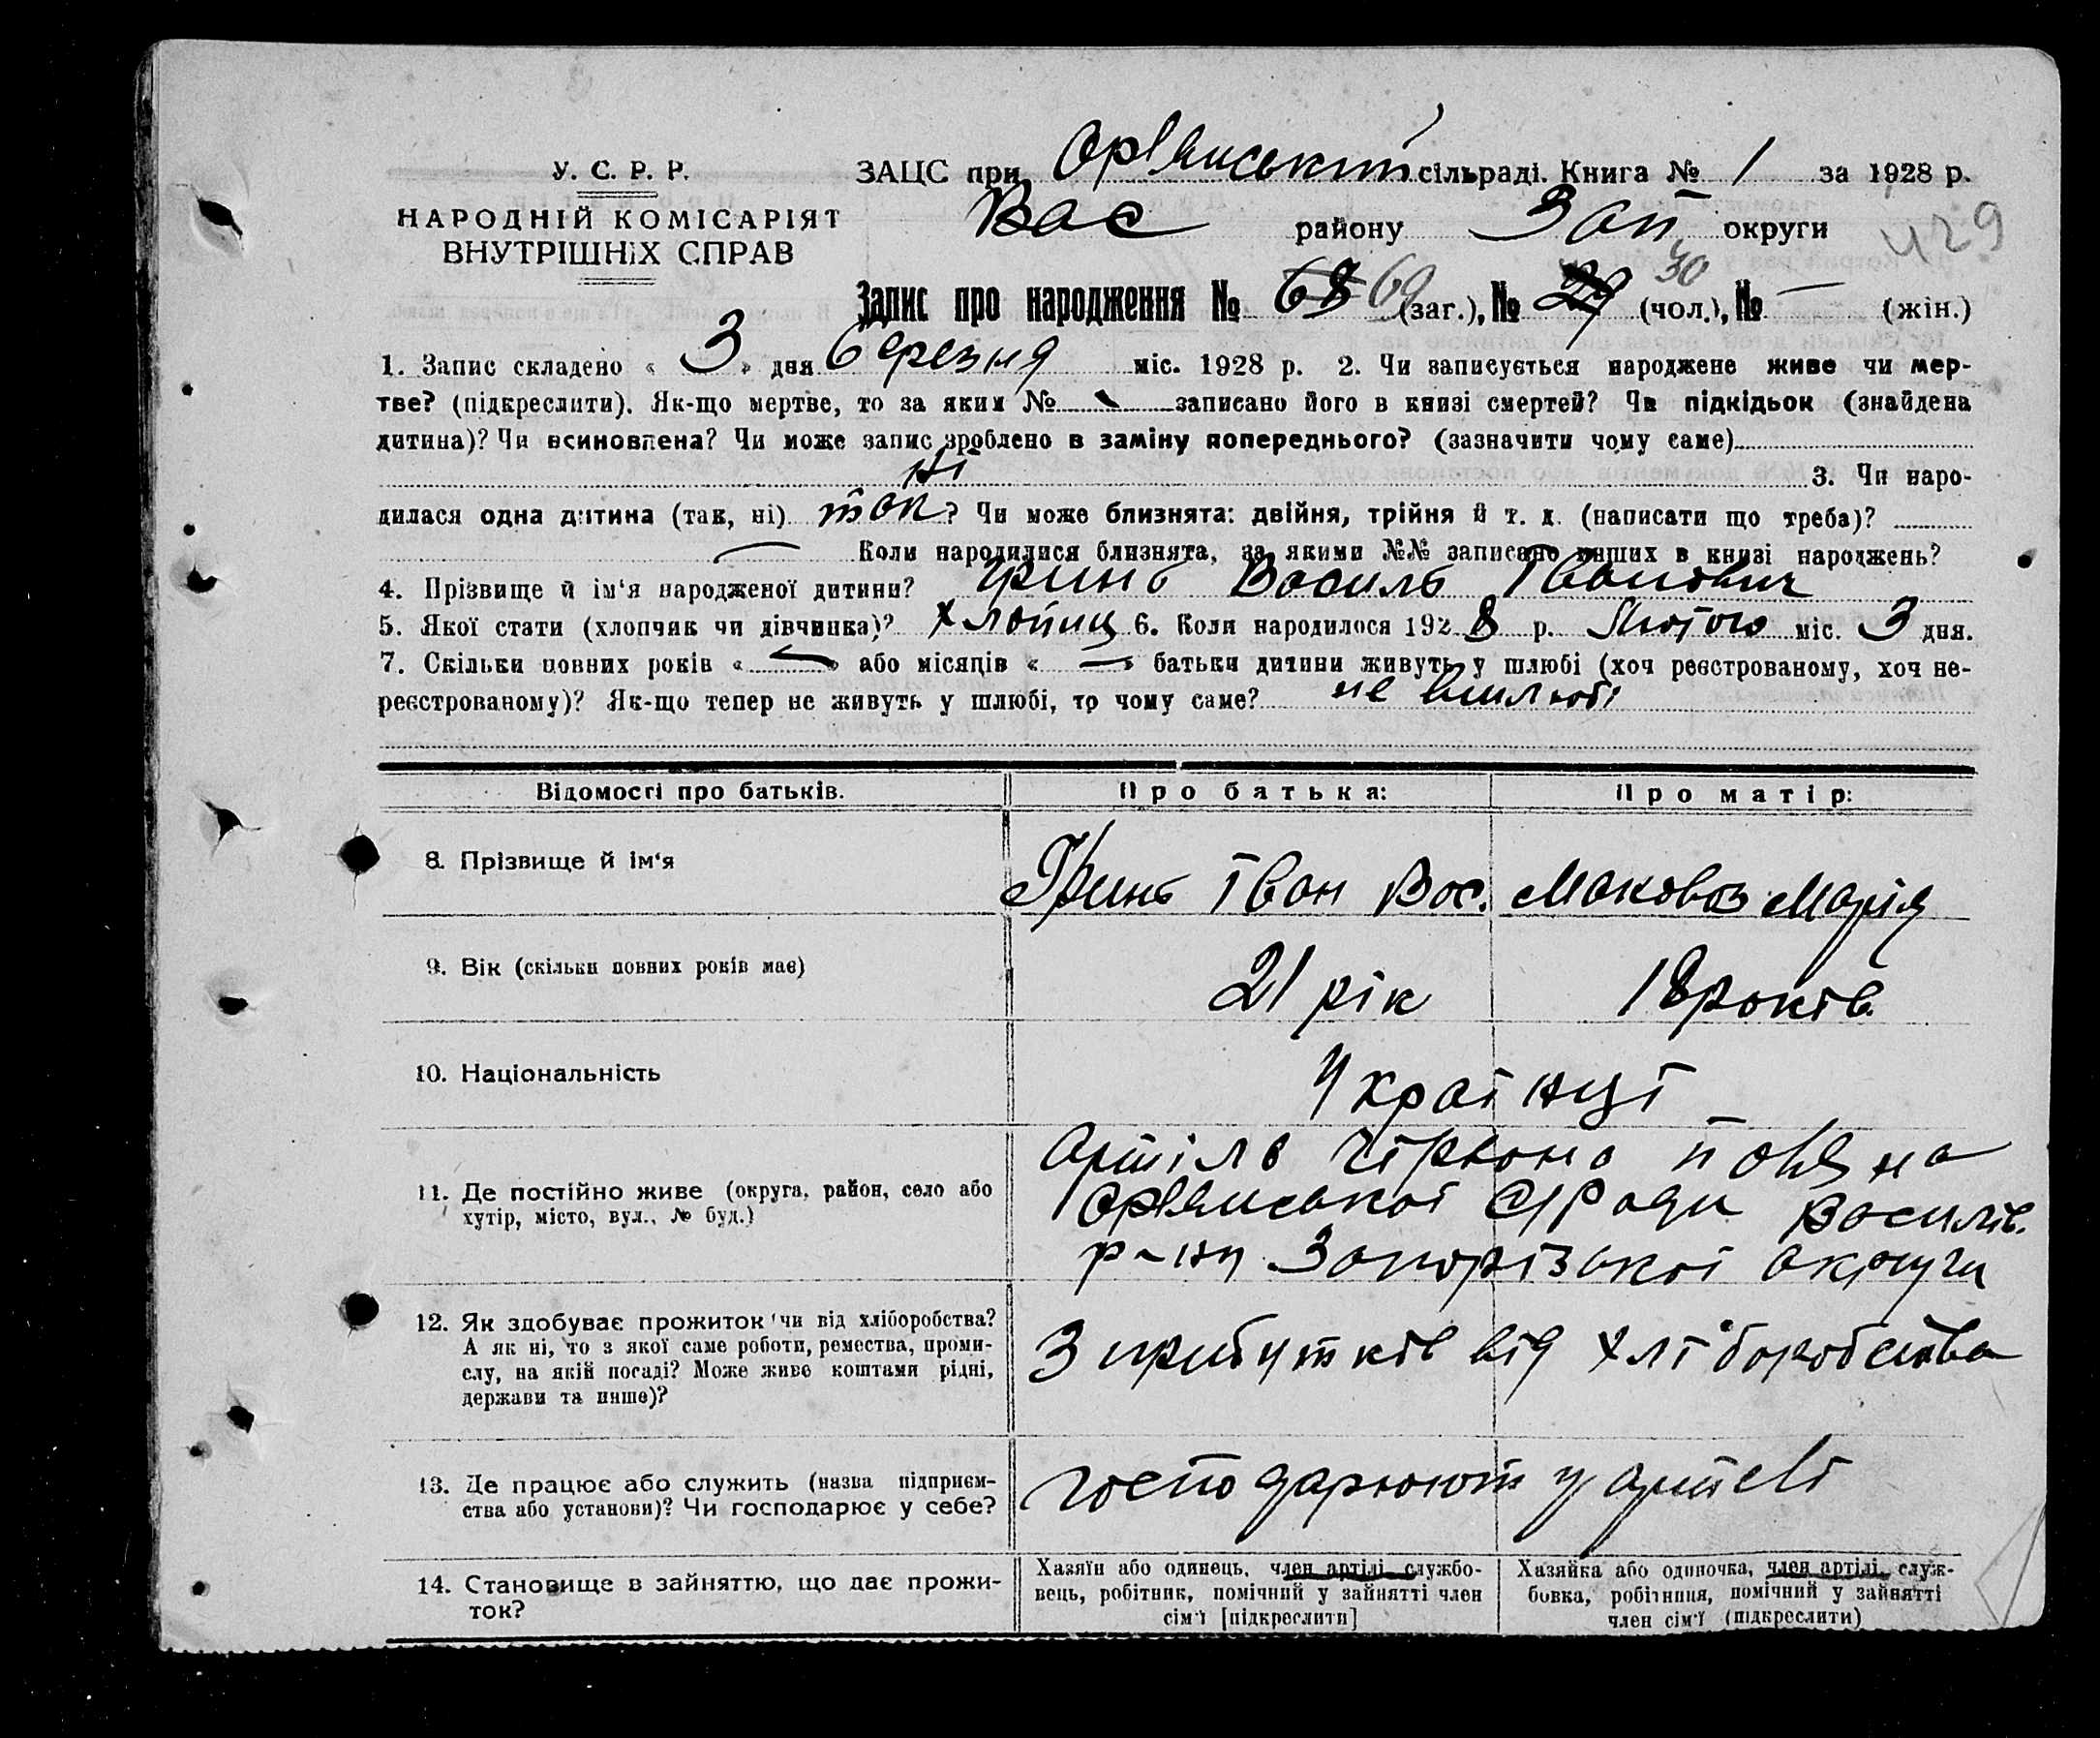 У. С. Р. Р.
НАРОДНІЙ КОМІСАРІЯТ
ВНУТРІШНІХ СПРАВ
ЗАЦС при Ор'янській сільраді. Книга № 1 за 1928 р.
Вас району Зап округи
429
Запис про народження № 68 69 (заг.), № 29 30 (чол.), № — (жін.)
1. Запис складено « 3 » дня березня міс. 1928 р. 2. Чи записується народжене живе чи мер-
тве? (підкреслити). Як-що мертве, то за яким № записано його в книзі смертей? Чи підкідьок (знайдена
дитина)? Чи всиновлена? Чи може запис зроблено в заміну попереднього? (зазначити чому саме)
Ні 3. Чи наро-
дилася одна дитина (так, ні) так? Чи може близнята: двійня, трійня й т. д. (написати що треба)?
— Коли народилися близнята, за якими №№ записано инших в книзі народжень?
4. Прізвище й ім'я народженої дитини? Гринь Василь Іванович
5. Якої стати (хлопчик чи дівчинка)? Хлопиц 6. Коли народилося 1928 р. Лютого міс. 3 дня.
7. Скільки повних років « — » або місяців « — » батьки дитини живуть у шлюбі (хоч реєстрованому, хоч не-
реєстрованому)? Як-що тепер не живуть у шлюбі, то чому саме? не вшлюбі
Відомості про батьків. Про батька: Про матір:
8. Прізвище й ім'я Гринь Іван Вас. Маковоз Марія
9. Вік (скільки повних років має) 21 рік 18 років
10. Національність Українці
11. Де постійно живе (округа, район, село або
хутір, місто, вул., № буд.)
Артіль Чірвона
Ор'янської с/ради Василів.
р-ну Запорізької округи
12. Як здобуває прожиток чи від хліборобства?
А як ні, то з якої саме роботи, ремества, проми-
слу, на якій посаді? Може живе коштами рідні,
держави та инше)?
З прибутків від хліборобства
13. Де працює або служить (назва підприєм-
ства або установи)? Чи господарює у себе?
господарюют у артелі
14. Становище в зайняттю, що дає прожи-
ток?
Хазяїн або одинець, член артілі, службо-
вець, робітник, помічний у зайнятті член
сім'ї [підкреслити]
Хазяйка або одиночка, член артілі, служ-
бовка, робітниця, помічний у зайнятті
член сім'ї (підкреслити)